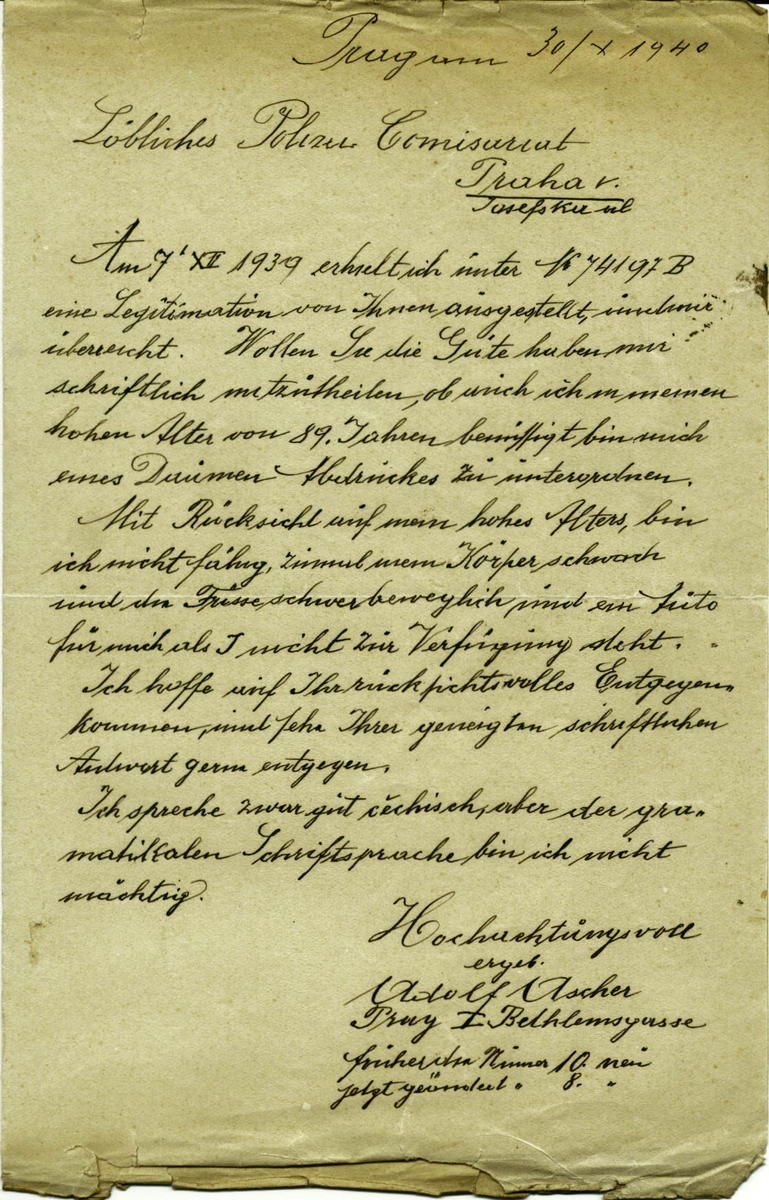 Prag am 30/X 1940
Löbliches Polizei Comisariat
Praha V.
Josefska ul
Am 7' XII 1939 erhielt ich unter Nr 74197 B
eine Legitimation von Ihnen ausgestellt, und mir
überreicht. Wollen Sie die Güte haben mir
schriftlich mitzutheilen, ob auch ich in meinen
hohen Alter von 89. Jahren bemüssigt bin mich
eines Daumen Abdruckes zu unterordnen.
Mit Rücksicht auf mein hohes Alters, bin
ich nicht fähig, zumal mein Körper schwach
und die Füsse schwer beweglich und ein Auto
für mich als J nicht zur Verfügung steht.
Ich hoffe auf Ihr rücksichtsvolles Entgegen„
kommen, und sehe Ihrer geneigten schriftlichen
Antwort gerne entgegen.
Ich spreche zwar gut čechisch, aber der gra„
matikalen Schriftsprache bin ich nicht
mächtig.
Hochachtungsvoll
ergeb.
Adolf Ascher
Prag I Bethlemsgasse
früher Numer 10. neu
jetzt geändert „ 8. „